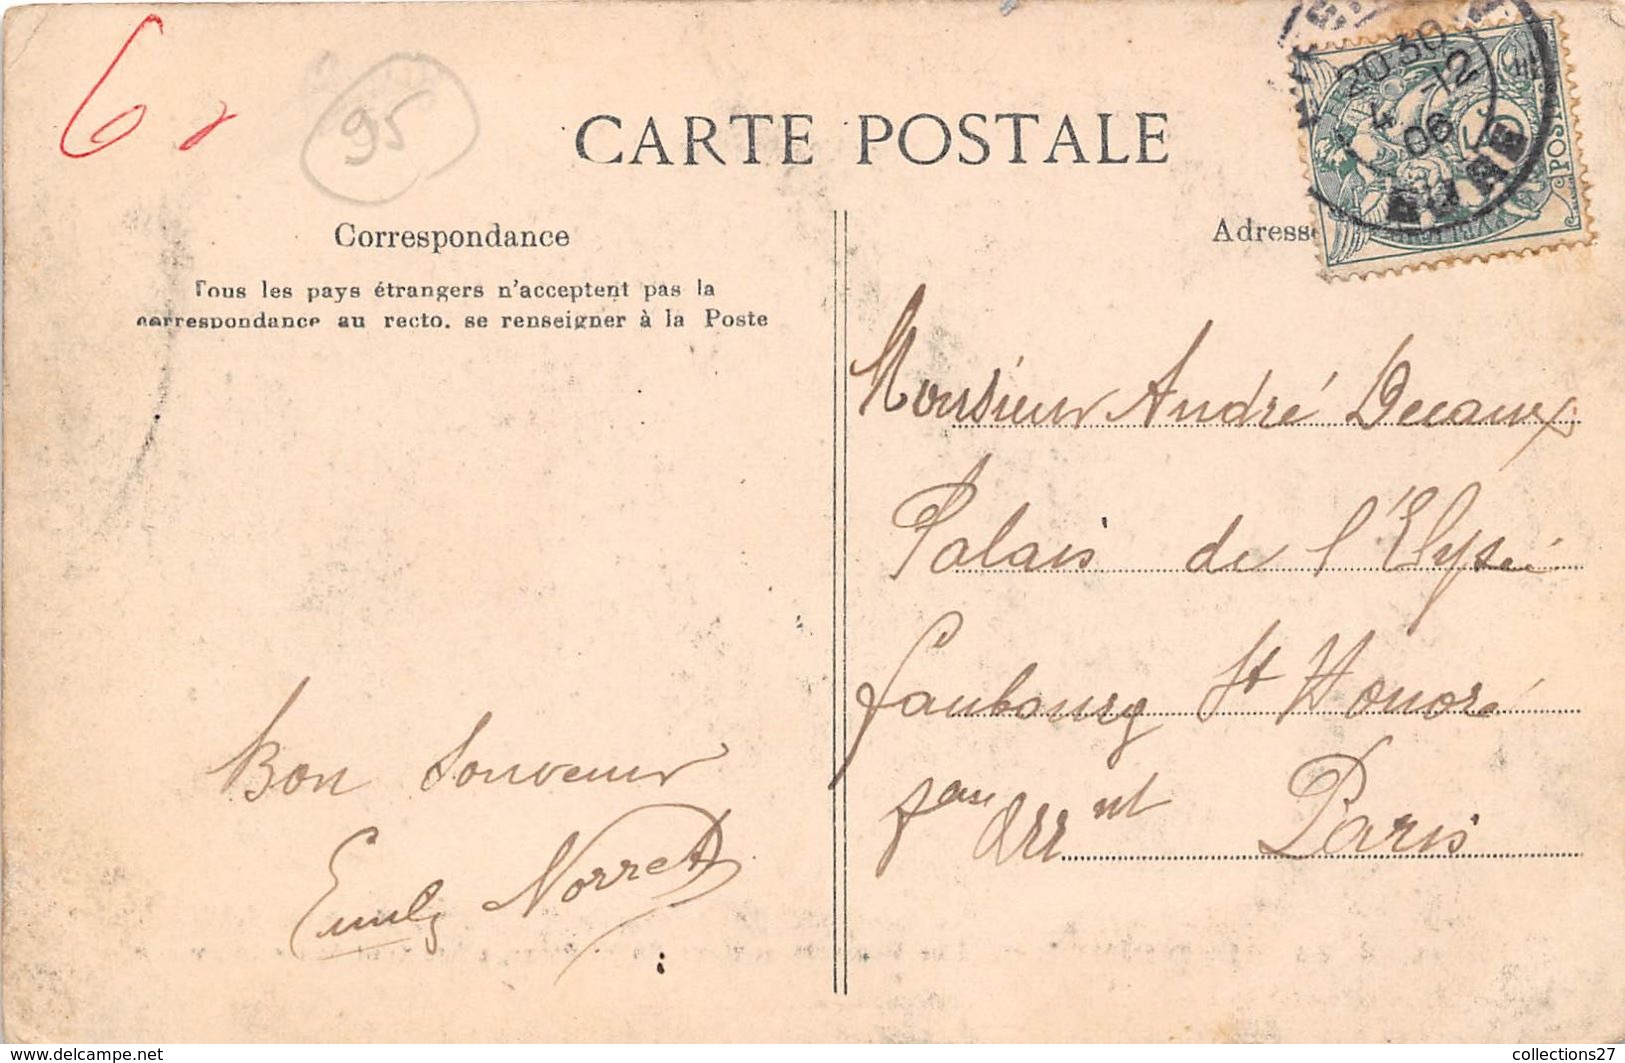 6
95
CARTE POSTALE
20 30
4 -12
06
EURE
POSTES
Correspondance
Tous les pays étrangers n'acceptent pas la
correspondance au recto. se renseigner à la Poste
Adresse
Monsieur André Decaux
Palais de l'Elysée
faubourg St Honoré
Paris
Bon Souvenir
Emily Norret
www.delcampe.net
collections27